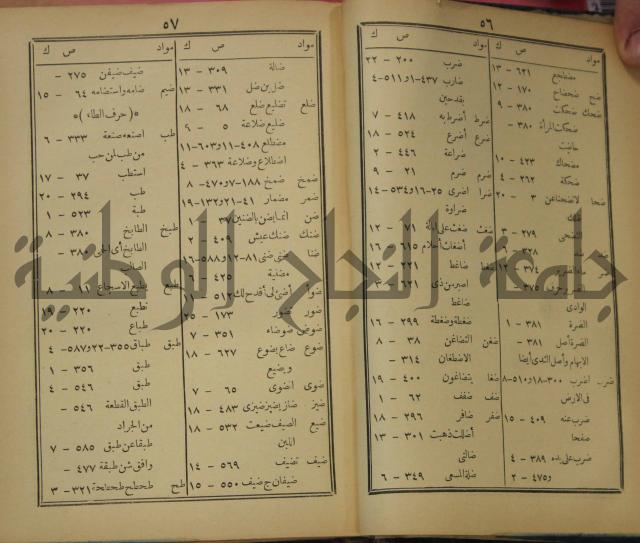 ٥٦
مواد ص ك
مضطجع ٦٢١ - ١٣
ضح ضحضاح ١٧٠ - ١٢
ضحك ضحكت ٣٨٠ - ٩
ضحكت المرأة ٣٨٠ -
حاضت
مضحاك ٤٢٣ - ١٠
ضحكة ٢٦٢ - ٤
ضحا لاضحنا عن ٣ - ٢٠
الضحى ٢٧٩ - ٣
الوادى
الضرة ٣٨١ - ١
الضرة أصل ٣٨١ -
الابهام وأصل الثدى أيضا
ضرب اضرب ٣٠٠-١٨و٥١٠-٨
فى الارض
ضرب عنه ٤٠٩ - ١٥
صفحا
ضرب على يده ٣٨٩ - ٤
و٤٧٥ - ٢
مواد ص ك
ضرب ٢٠٠ - ٢٢
ضارب ٤٣٧-١و٥١١-٤
بقدحين
ضرط أضرط به ٤١٨ - ٧
ضرع أضرع ٥٢٤ - ١٨
ضراعة ٤٤٦ - ٢
ضرم ضرم ٢١ - ٩
ضرا اضرى ٢٥-١٦و٥٣٤-١٤
ضراوة
ضغث ضغث على ابالة ٧١ - ١٢
أضغاث أحلام ٦١٥ - ١٦
ضغط ضاغط ٢٢١ - ١٢
اصبر من ذى ٦٢١ -
ضاغط
ضغطة وضغطة ٢٩٩ - ١٦
ضغن التضاغن ٣٨ - ٨
الاضطغان ٣١٤ -
ضغا يتضاغون ٤٠٠ - ١٩
ضف ضفف ٦٢ - ١
ضفر ضافر ٢٩٦ - ١٨
أضللت ذهبت ٣٠١ - ١٣
ضالتى
ضلة المسعى ٣٤٩ - ٦
٥٧
مواد ص ك
ضالة ٣٠٩ - ١٣
ضل بن ضل ٣٣١ - ١٣
ضلع تضليع ضلع ٦٨ - ١٨
ضليع ضلاعة ٥ - ٩
مضطلع ٤٠٨-١١و٦٠٣-١١
اضطلاع وضلاعة ٣٦٣ - ٤
ضمخ ضمخ ١٨٨-٧و٤٧٠-٨
ضمر مضمار ٤١-٢١و١٣٢-١٩
ضن انما يضن بالضنين ٣٧ - ١
ضنك ضنك عيش ٤٠٩ - ٢
ضنا ضنى ضنى ٨١-١٢و٥٨٨-١٦
مضنية ٤٢٥ - ٦
ضوأ أضئ لى أقدح لك ٥١٢ - ١١
ضور ضور ١٧٣ - ٢٥
ضوض ضوضاء ٣٥١ - ٧
ضوع ضاع يضوع ٦٢٧ - ١٨
ويضيع
ضوى اضوى ٦٥ - ٧
ضيز ضاز يضيز ضيزى ٤٨٣ - ١٨
ضيع الصيف ضيعت ٥٣٢ - ١٨
اللبن
ضيف تضيف ٥٦٩ - ١٤
ضيفان ج ضيف ٥٥٠ - ١٥
مواد ص ك
ضيف ضيفن ٢٧٥ -
ضيم ضامه واستضامه ٦٤ - ١٥
﴿حرف الطاء﴾
طب اصنعه صنعة ٣٣٣ - ٦
من طب لمن حب
استطب ٣٧ - ١٧
طب ٢٩٤ - ٢٠
طبة ٥٢٣ - ١
طبخ الطابخ ٣٨٠ - ٨
الطابخ أى الحى ٣٨٠ -
طبع طبع الاسجاع ١١ - ٨
تطبع ٢٢٠ - ١٩
طباع ٢٢٠ - ٢٠
طبق طباق ٣٥٥-٢٢و٥٨٧-٤
طبق ٣٥٦ - ١
طبق ٥٤٦ - ٤
الطبق القطعة ٥٤٦ -
من الجراد
طبقا عن طبق ٥٨٥ - ٧
وافق شن طبقة ٤٧٧ -
طح طحطح طحطحة ٣٢١ - ٣
جامعة النجاح الوطنية